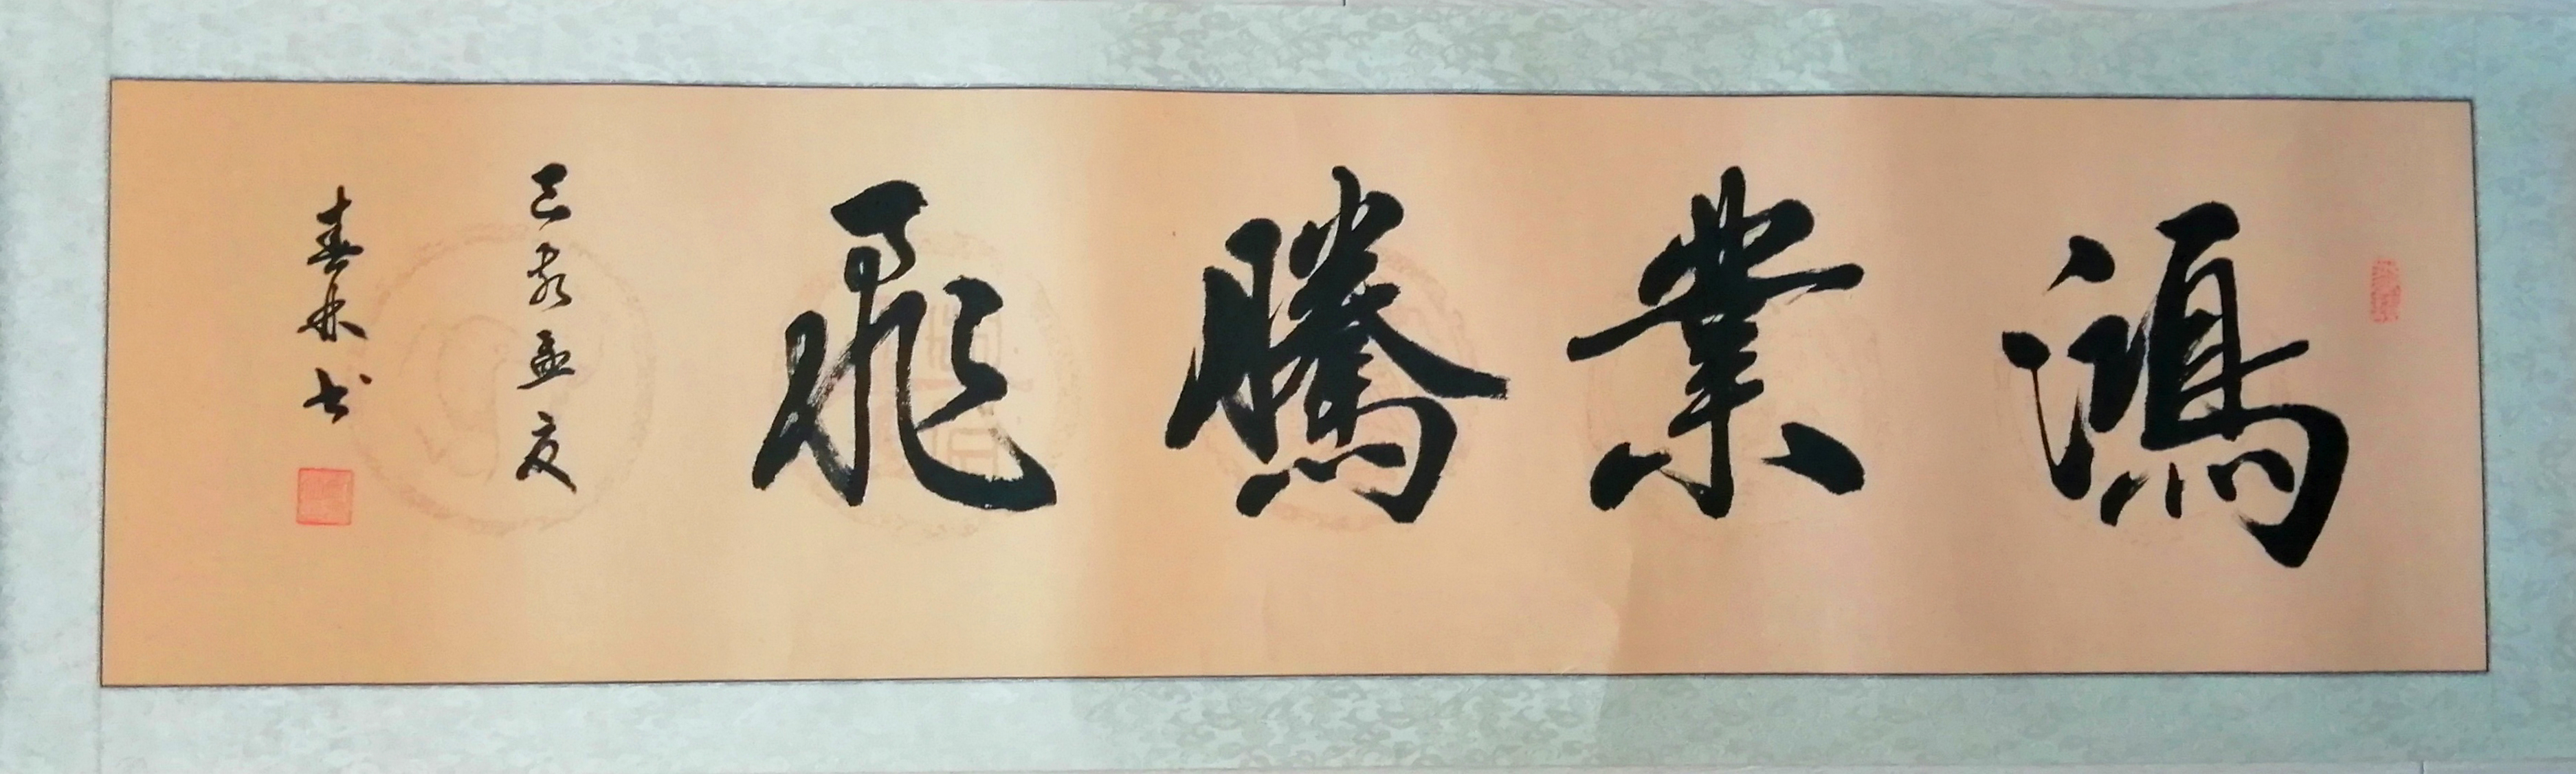 鴻業騰飛
己亥孟夏
春林书